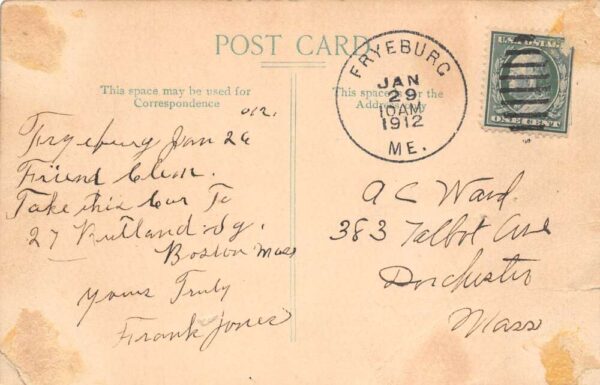 POST CARD
This space may be used for
Correspondence
This space is for the
Address only
FRYEBURG
JAN
29
10AM
1912
ME.
U.S. POSTAGE
ONE CENT
Fryeburg Jan 26
Friend
Take this Car To
27 Rutland Sq.
Boston Mass
yours Truly
Frank Jones
A C Ward
383 Talbot Ave
Dorchester
Mass